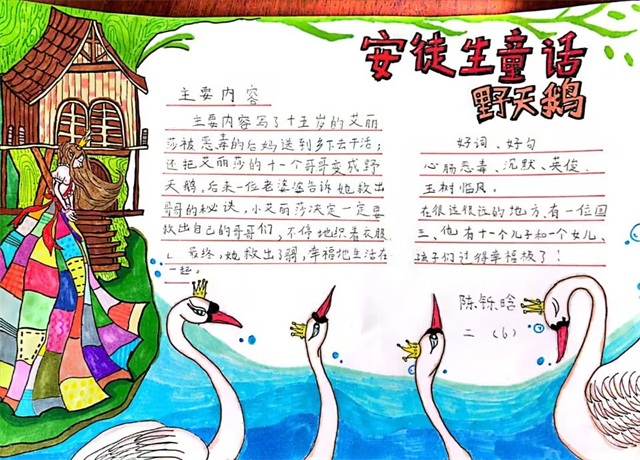 安徒生童话
野天鹅
主要内容
主要内容写了十五岁的艾丽
莎被恶毒的后妈送到乡下去干活；
还把艾丽莎的十一个哥哥变成野
天鹅，后来一位老婆婆告诉她救出
哥哥的秘诀，小艾丽莎决定一定要
救出自己的哥哥们，不停地织着衣服
。最终，她救出了哥，幸福地生活在
一起。
好词、好句
心肠恶毒、沉默、英俊、
玉树临风。
在很远很远的地方，有一位国
王，他有十一个儿子和一个女儿，
孩子们过得幸福极了！
陈铄晗
二（6）